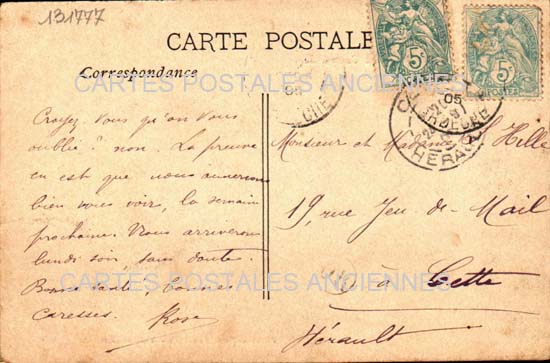 131777
CARTE POSTALE
Correspondance
Croyez vous qu'on vous
oublié? non. La preuve
en est que nous aimerions
bien vous voir, la semaine
prochaine. Nous arriverons
lundi soir, sans doute.
Bonne santé, bonnes
caresses. Rose
Monsieur et Madame Hille
19, rue Jeu de Mail
à Cette
Hérault
5c
POSTES
5c
POSTES
05
ARDECHE
HERAULT
CARTES POSTALES ANCIENNES
CARTES POSTALES ANCIENNES